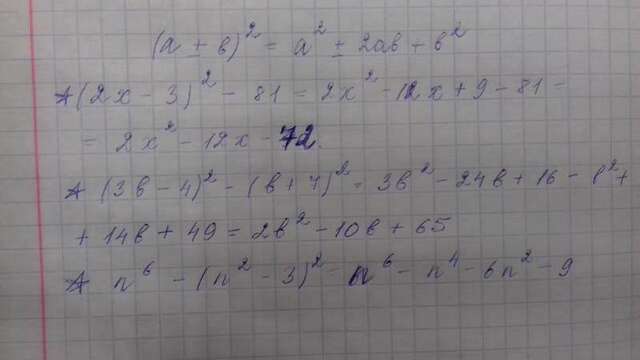 (a ± b)² = a² ± 2ab + b²
(2x - 3)² - 81 = 2x² - 12x + 9 - 81 -
= 2x² - 12x - 72.
(3b - 4)² - (b + 7)² = 3b² - 24b + 16 - b² +
+ 14b + 49 = 2b² - 10b + 65
n⁶ - (n² - 3)² - n⁶ - n⁴ - 6n² - 9